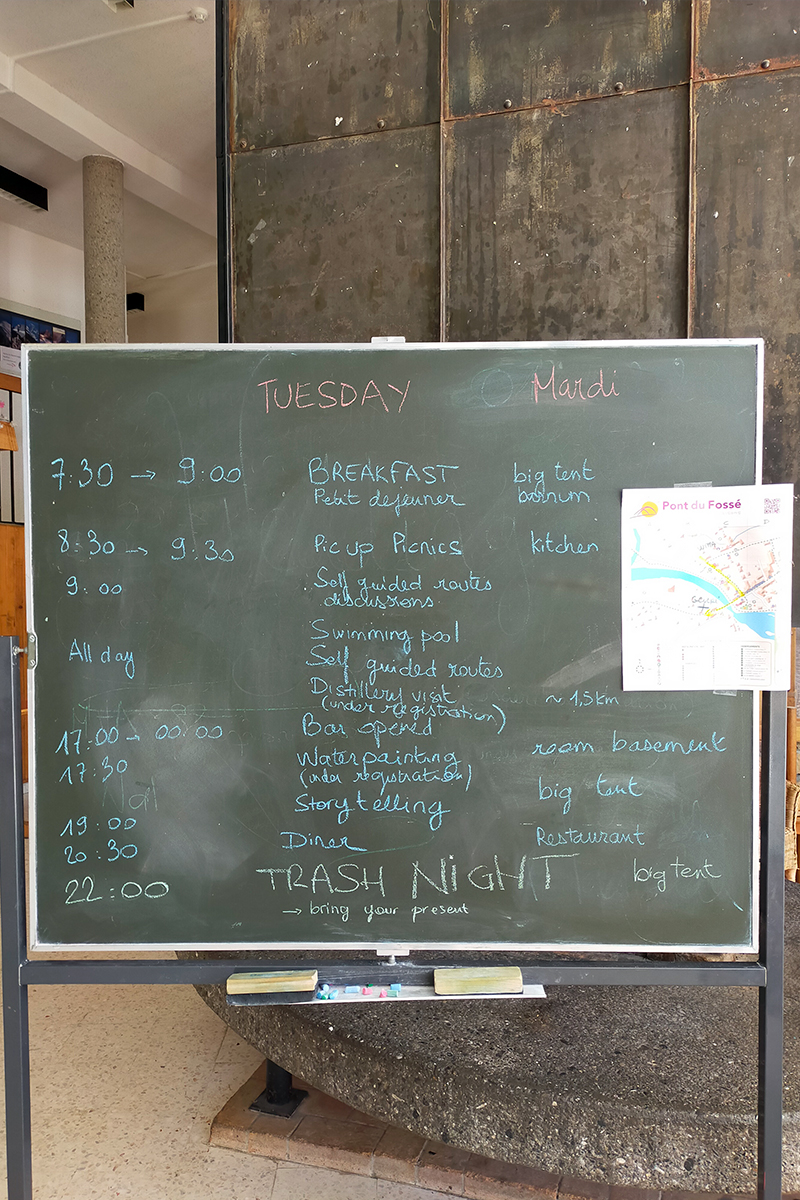 TUESDAY Mardi
7:30 → 9:00 BREAKFAST big tent
Petit dejeuner barnum
Pont du Fossé
8:30 → 9:30 Pic up Picnics kitchen
9:00 Self guided routes
discussions
Swimming pool
All day Self guided routes
Distillery visit ~ 1,5km
(under registration)
17:00 → 00:00 Bar opened
17:30 Waterpainting room basement
(under registration)
19:00 Storytelling big tent
20:30 Diner Restaurant
22:00 TRASH NiGHT big tent
→ bring your present